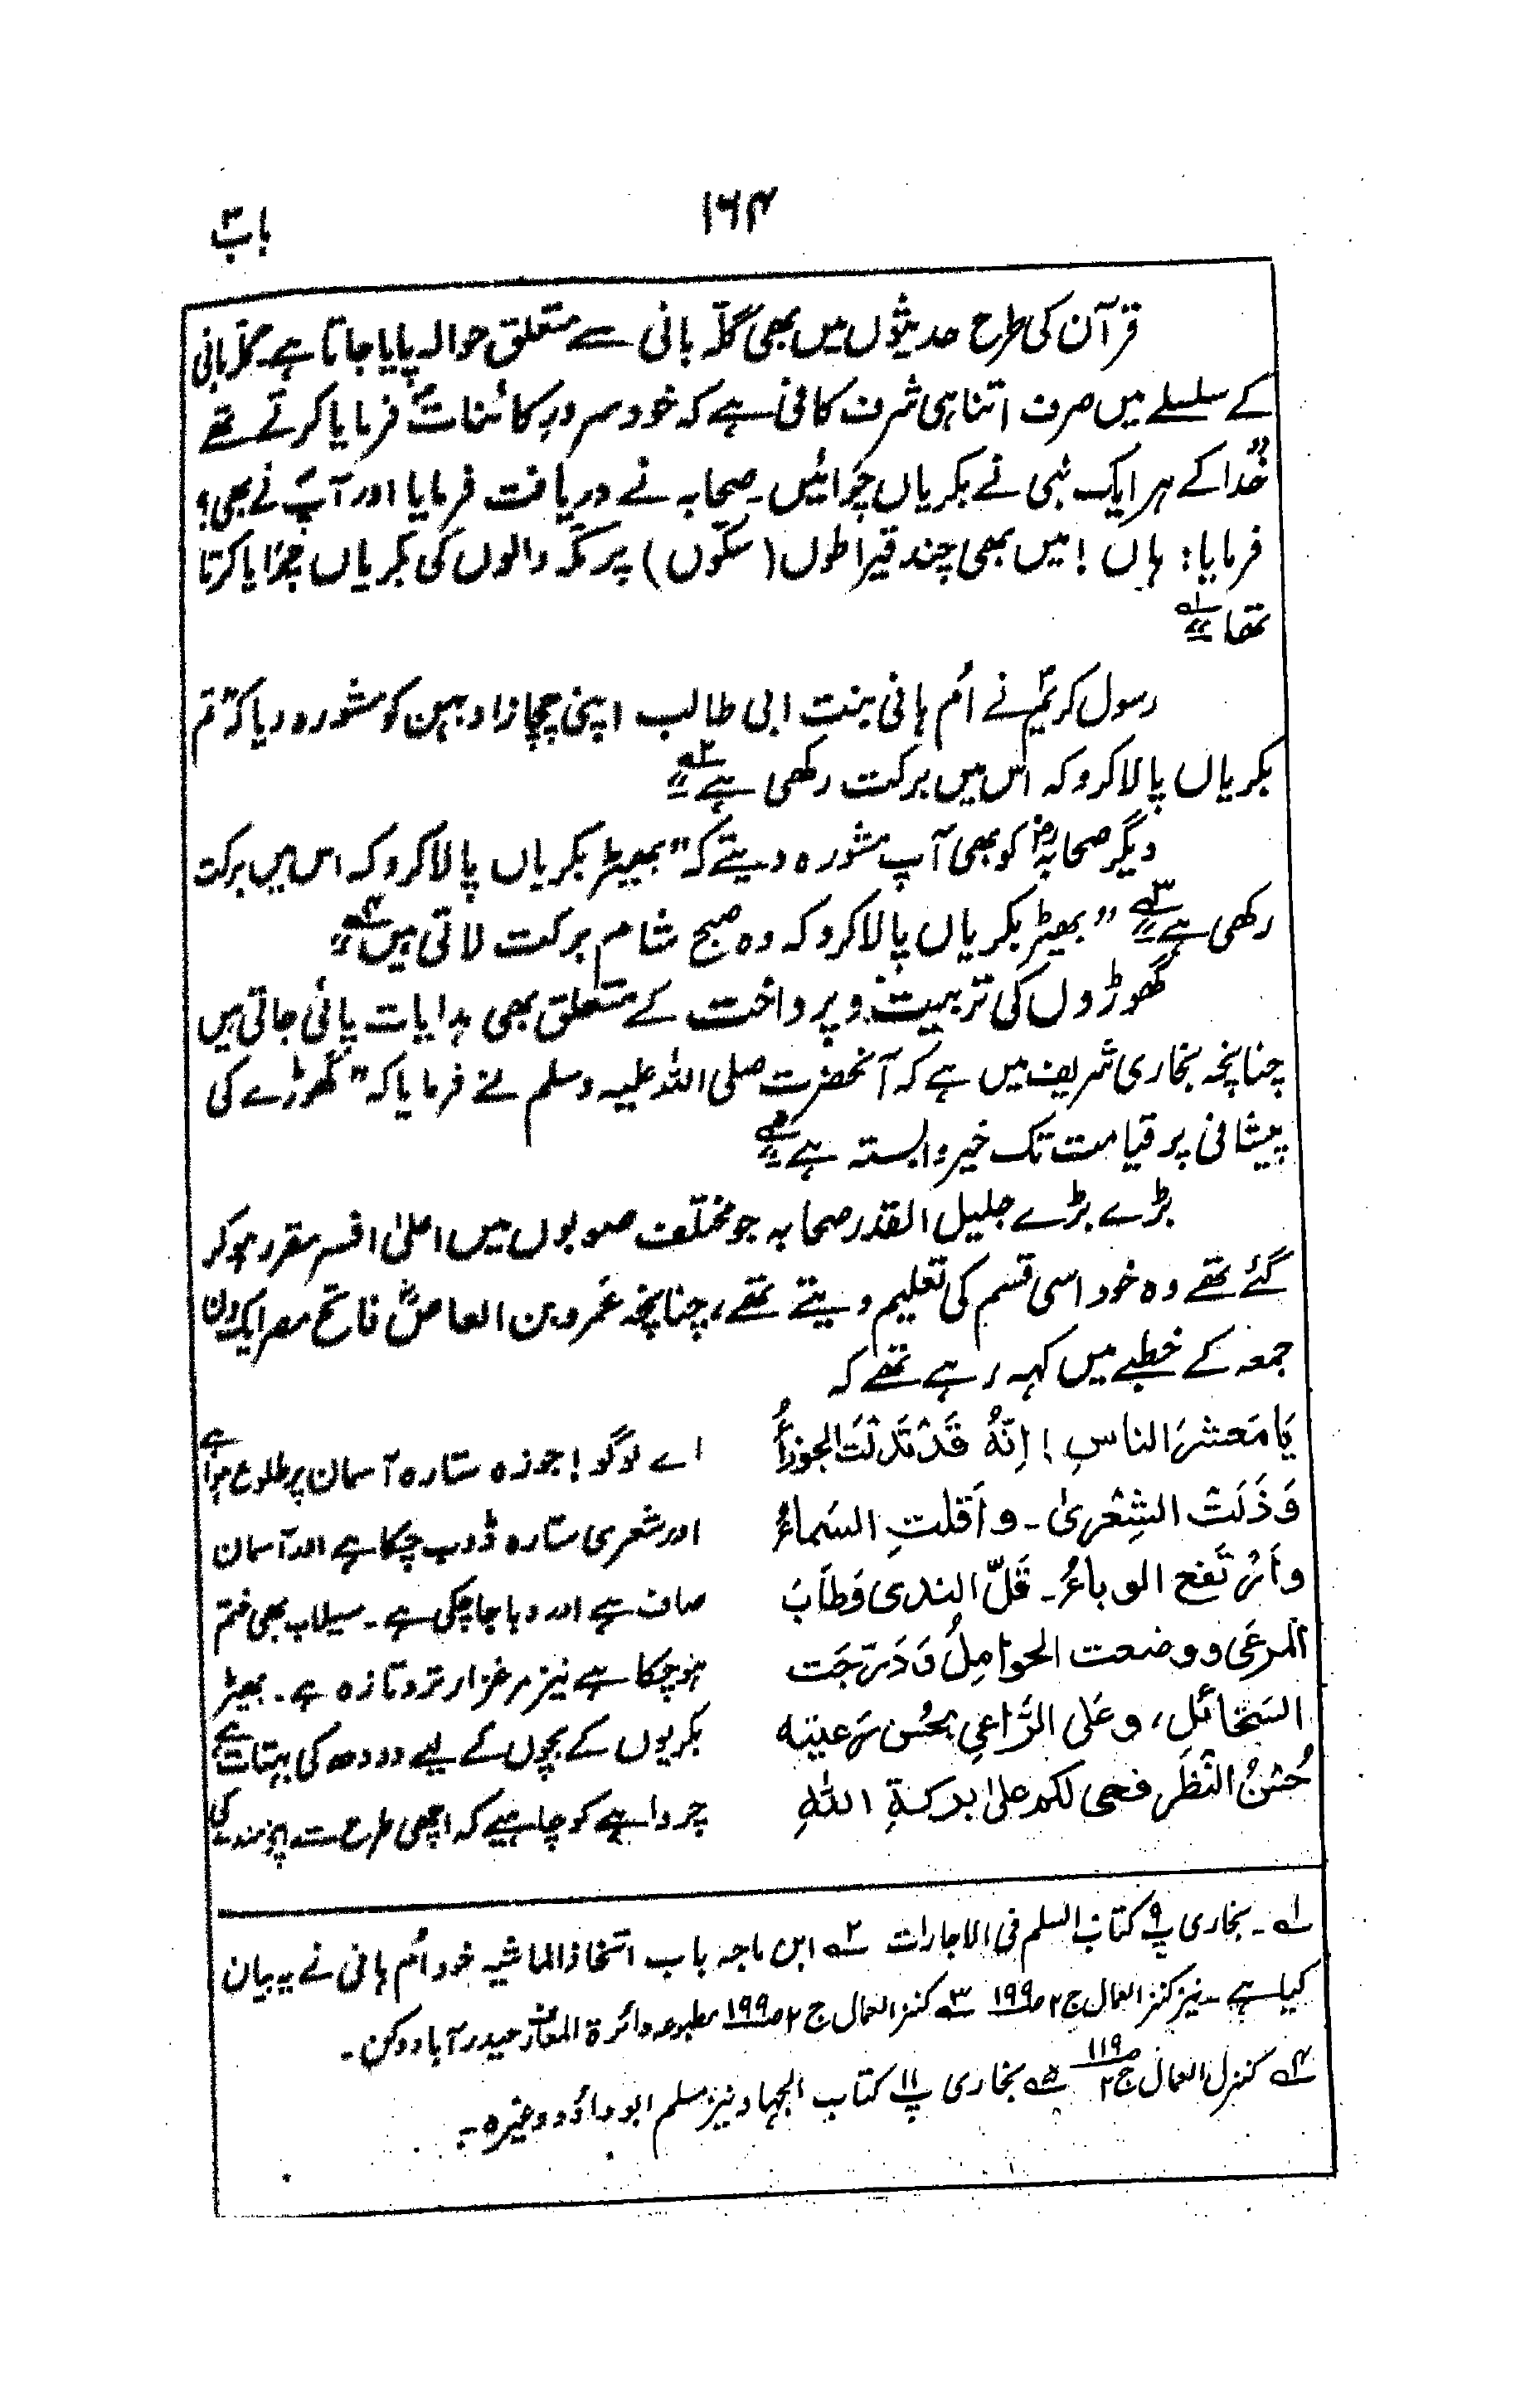 ۱۶۴
باب ۳
قرآن کی طرح حدیثوں میں بھی گلّہ بانی سے متعلق حوالہ پایا جاتا ہے۔ گلّہ بانی
کے سلسلے میں صرف اتنا ہی شرف کافی ہے کہ خود سرورِ کائناتؐ فرمایا کرتے تھے
"خُدا کے ہر ایک نبی نے بکریاں چَرائیں۔ صحابہ نے دریافت فرمایا اور آپؐ نے بھی؟
فرمایا: ہاں! میں بھی چند قیراطوں (سکّوں) پر مکّہ والوں کی بکریاں چَرایا کرتا
تھا"۱؎
رسول کریمؐ نے اُم ہانی بنتِ ابی طالب اپنی چچازاد بہن کو مشورہ دیا کہ "تم
بکریاں پالا کرو کہ اس میں برکت رکھی ہے"۲؎
دیگر صحابہؓ کو بھی آپ مشورہ دیتے کہ "بھیڑ بکریاں پالا کرو کہ اس میں برکت
رکھی ہے"۳؎ "بھیڑ بکریاں پالا کرو کہ وہ صبح شام برکت لاتی ہیں"۴؎
گھوڑوں کی تربیت و پرداخت کے متعلق بھی ہدایات پائی جاتی ہیں
چنانچہ بخاری شریف میں ہے کہ آنحضرت صلی اللہ علیہ وسلم نے فرمایا کہ "گھوڑے کی
پیشانی پر قیامت تک خیر وابستہ ہے"۵؎
بڑے بڑے جلیل القدر صحابہ جو مختلف صوبوں میں اعلیٰ افسر مقرر ہو کر
گئے تھے وہ خود اسی قسم کی تعلیم دیتے تھے، چنانچہ عَمرو بن العاصؓ فاتح مصر ایک دن
جمعہ کے خطبے میں کہہ رہے تھے کہ
يَا مَعشرَ الناسِ! اِنّهُ قَدْ تَدَلّتَ الجوزأُ
وَذَلَتْ الشِعْریٰ۔ و اَقلتِ السَماءُ
و اَرْتَفع الوباءُ۔ قَلّ الندى وَطاَبَ
المرعَى و وضعت الحوَامِلُ وَدَرّجَت
السَخَائَل، وعَلى الرَّاعِي بحُسْن رَعيته
حُسْنُ النَظَر فحى لكم على بركةِ اللّٰهِ
اے لوگو! جوزہ ستارہ آسمان پر طلوع ہوا ہے
اور شعری ستارہ ڈوب چکا ہے اور آسمان
صاف ہے اور وبا جا چکی ہے۔ سیلاب بھی ختم
ہو چکا ہے نیز مرغزار تر و تازہ ہے۔ بھیڑ
بکریوں کے بچوں کے لیے دودھ کی بہتات ہے
چرواہے کو چاہیے کہ اچھی طرح سے
۱؎۔ بخاری پ ۹ کتاب السلم فی الاجارات ۲؎ ابن ماجہ باب اتخاذ الماشیہ خود اُم ہانی نے یہ بیان
کیا ہے۔ نیز کنز العمال ج ۲ ص ۱۹۹ ۳؎ کنز العمال ج ۲ ص ۱۹۹ مطبوعہ دائرۃ المعارف حیدرآباد دکن۔
۴؎ کنزل العمال ج ۲ ص ۱۱۹ ۵؎ بخاری پ ۱۱ کتاب الجہاد نیز مسلم ابو داؤد وغیرہ۔